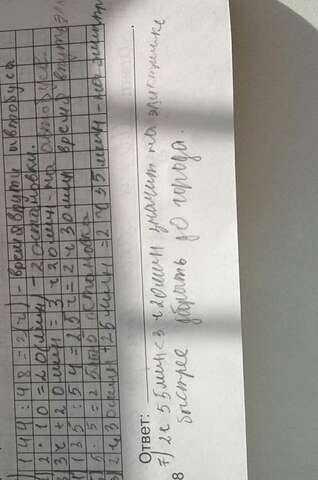 1) 144 : 48 = 3 (ч) - время в пути автобуса
2) 2 · 10 = 20 (мин) - 2 остановки.
3 ч + 20 мин = 3 ч 20 мин - на автобусе
1 135 : 54 = 2,5 ч = 2 ч 30 мин время в пути эл
5) 5 · 5 = 25 остановка
) 2 ч 30 мин + 25 мин = 2 ч 55 мин - на электр
Ответ:
7) 2ч 55мин < 3 ч 20мин значит на электричке
быстрее до города.
8